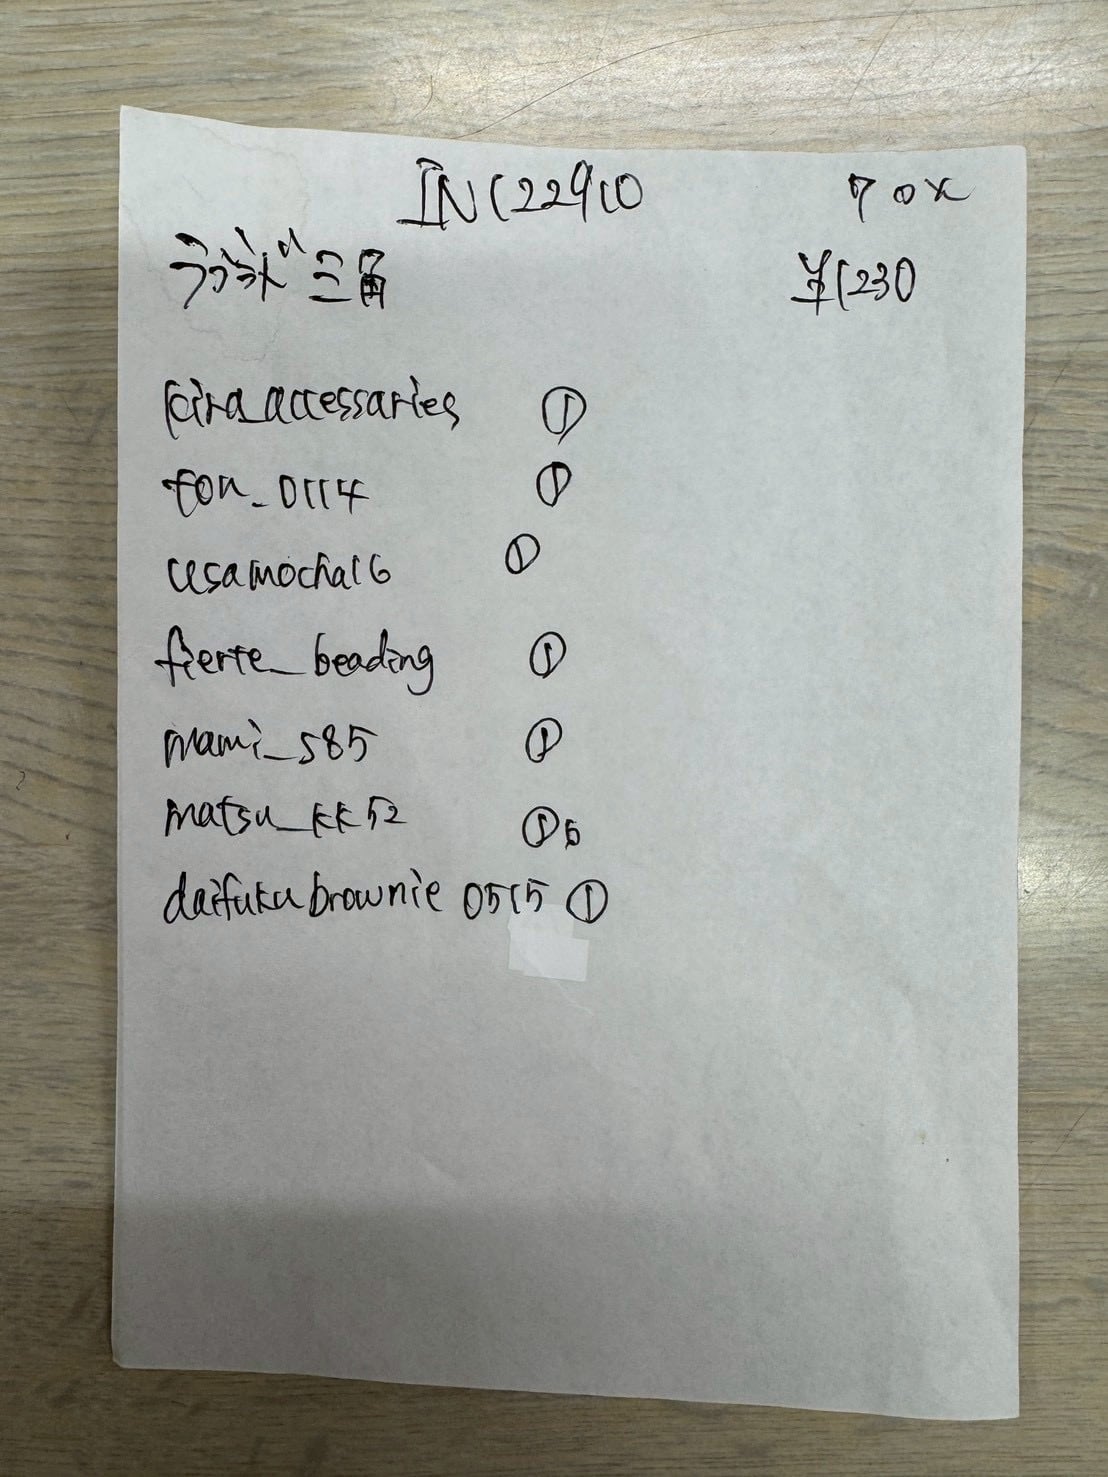 INC22910 7 0x
ラウンド三角 ¥1230
kira_accessaries ①
ton_0114 ①
usamocha16 ①
fierte_beading ①
mami_s85 ①
matsu_kk52 ①5
daifukubrownie 0515 ①